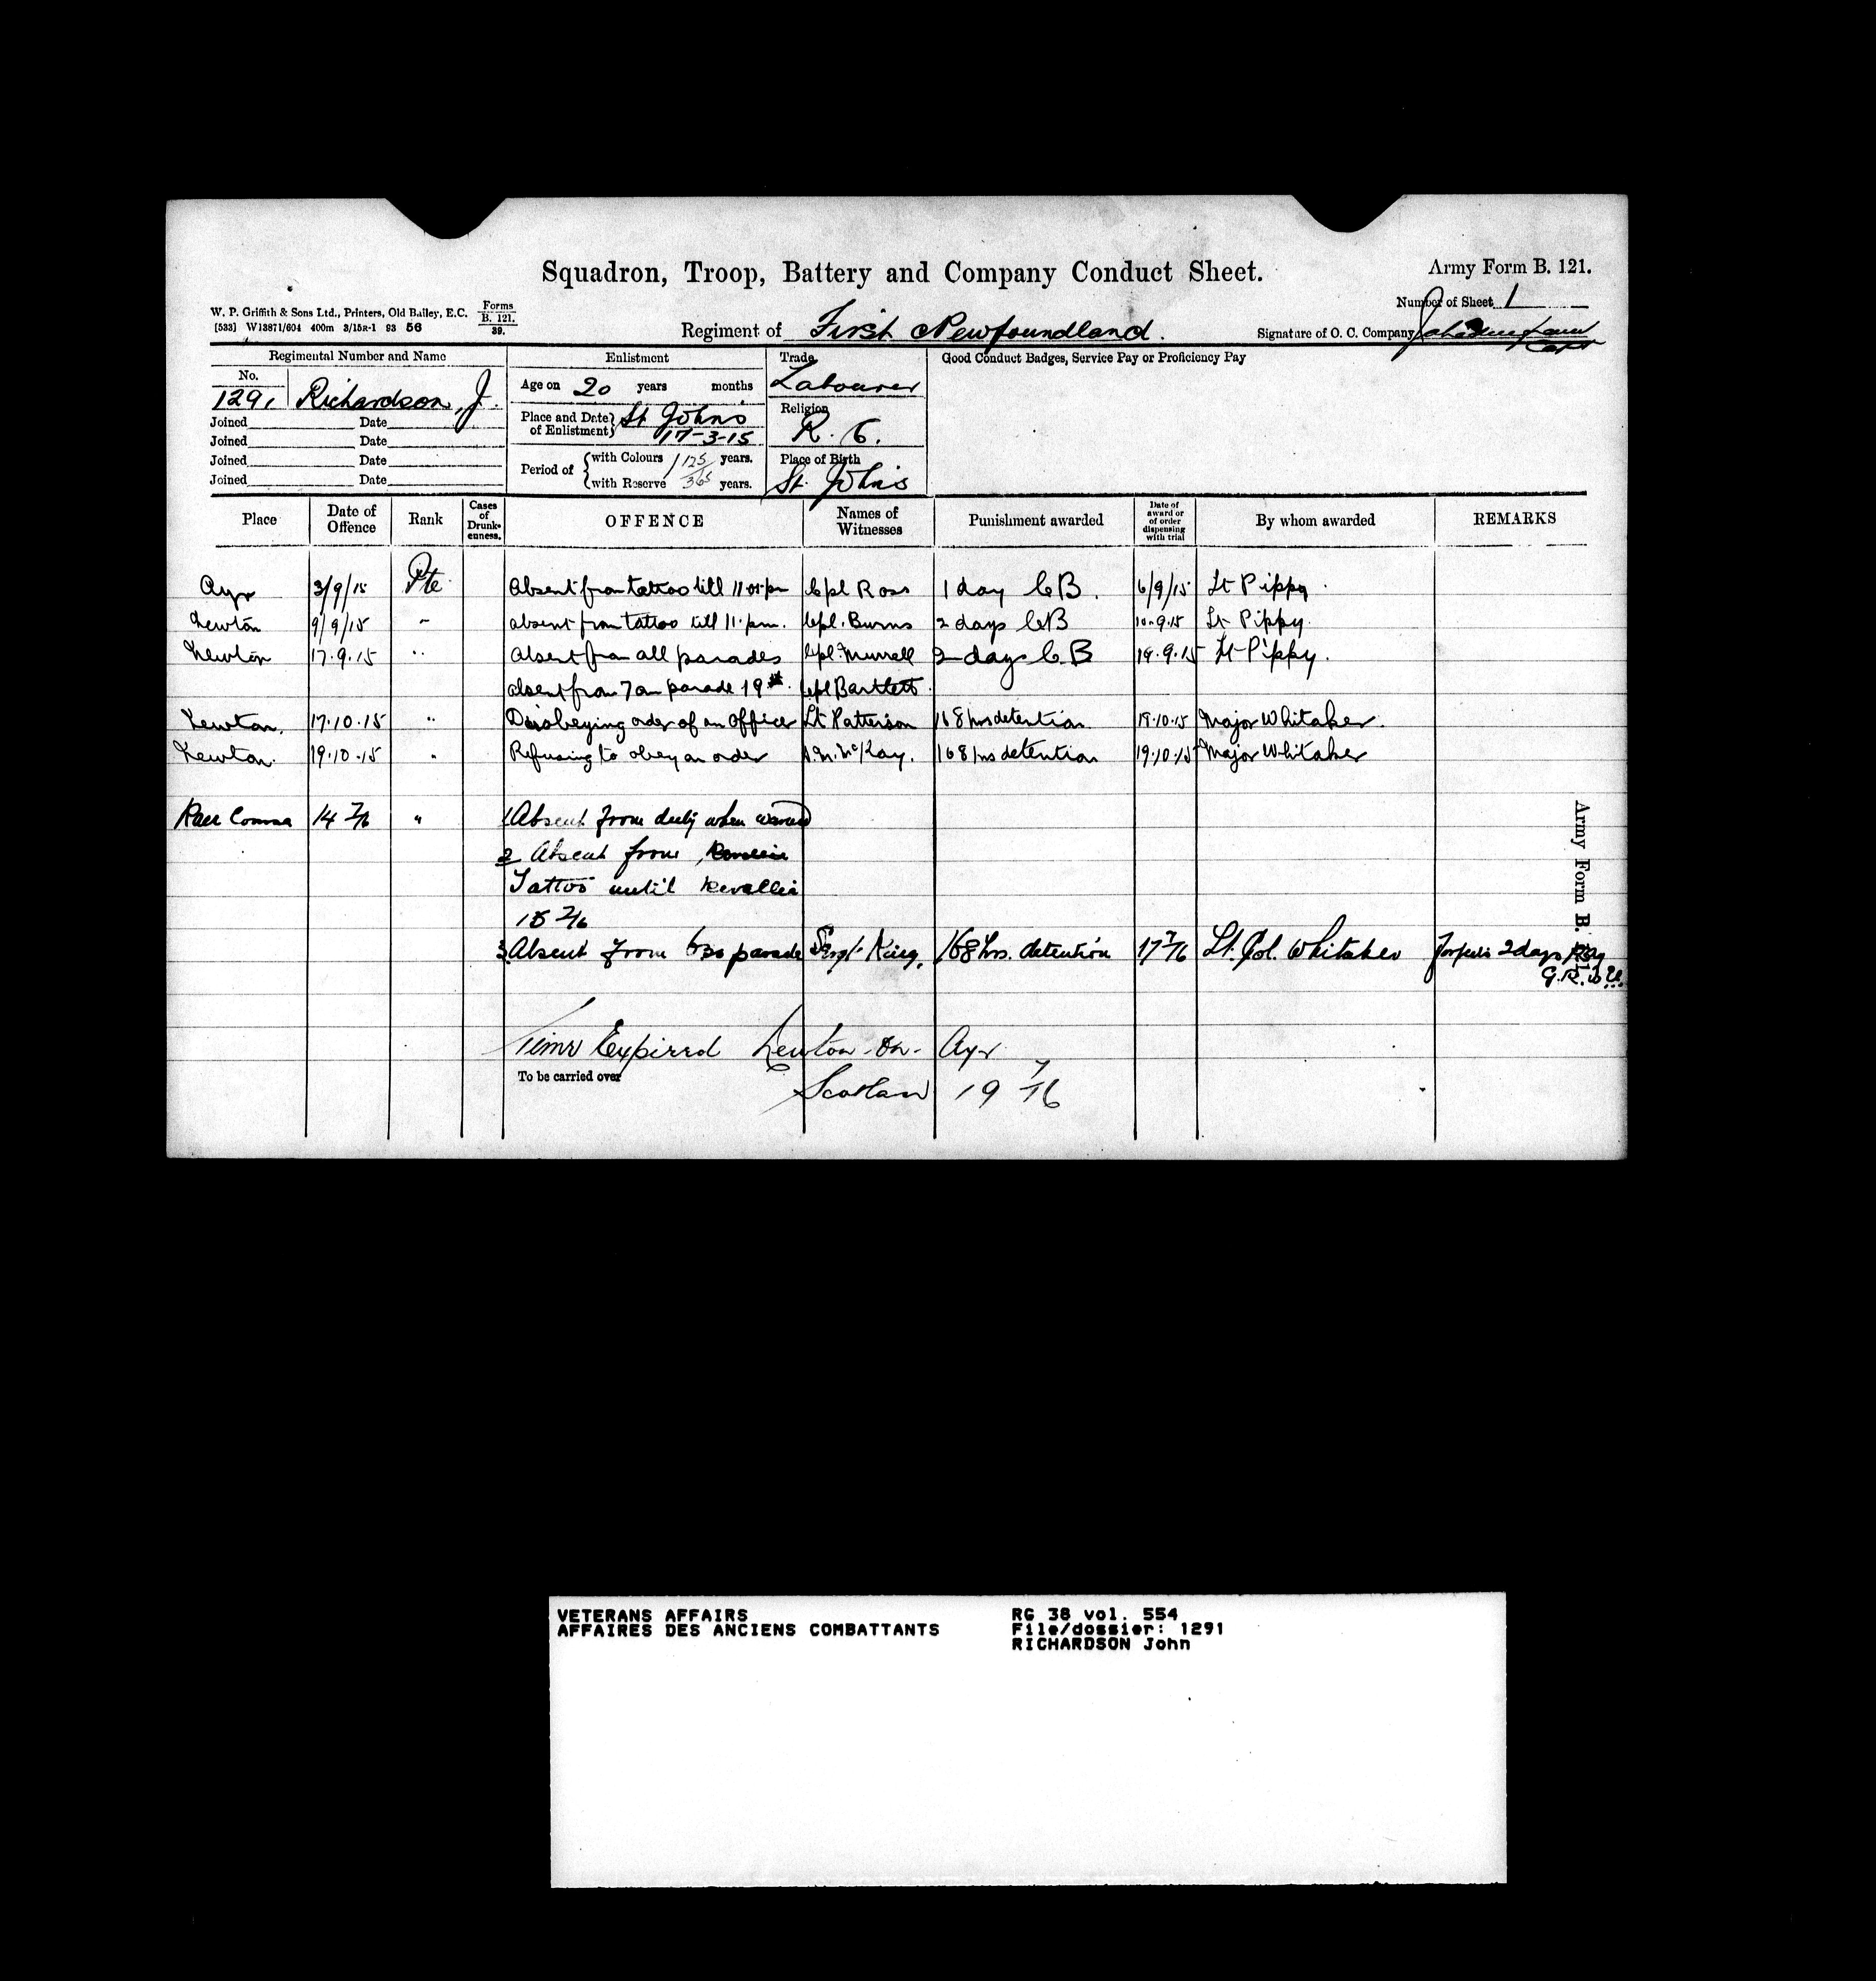 Squadron, Troop, Battery and Company Conduct Sheet.
Army Form B. 121.
Number of Sheet 1
W. P. Griffith & Sons Ltd., Printers, Old Bailey, E.C.
[533] W13871/604 400m 3/15R-1 93 56
Forms
B. 121.
39.
Regiment of First Newfoundland.
Signature of O. C. Company Capt
Regimental Number and Name
Enlistment
Trade
Good Conduct Badges, Service Pay or Proficiency Pay
No.
1291 Richardson, J.
Age on 20 years months
Labourer
Joined Date
Joined Date
Joined Date
Joined Date
Place and Date of Enlistment St Johns
17-3-15
Religion
R. C.
Period of with Colours 1 125/365 years.
with Reserve years.
Place of Birth
St. Johns
Place
Date of Offence
Rank
Cases of Drunkenness.
OFFENCE
Names of Witnesses
Punishment awarded
Date of award or of order dispensing with trial
By whom awarded
REMARKS
Ayr 3/9/15 Pte Absent from tattoo till 11.05 pm Cpl Ross 1 day CB. 6/9/15 Lt Pippy.
Newton 9/9/15 " absent from tattoo till 11.pm. Cpl. Burns 2 days CB 10.9.15 Lt Pippy.
Newton 17.9.15 " Absent from all parades Cpl Murrell 2 days C.B 19.9.15 Lt Pippy.
absent from 7am parade 19th. Cpl Bartlett.
Newton. 17.10.15 " Disobeying order of an Officer Lt Patterson 168 hrs detention 19.10.15 Major Whitaker.
Newton. 19.10.15 " Refusing to obey an order McKay. 168 hrs detention 19.10.15 Major Whitaker
14 7/16 " 1 Absent from duty when warned
2 Absent from
Tattoo until Revallie
15 7/16
3. Absent from 6 30 parade Sergt. King. 168 hrs. detention 17 7/16 Lt. Col. Whitaker forfeits 2 days pay
Army Form B. 121.
Time Expired Newton-on-Ayr
To be carried over
Scotland 19 7/16
VETERANS AFFAIRS
AFFAIRES DES ANCIENS COMBATTANTS
RG 38 vol. 554
File/dossier: 1291
RICHARDSON John